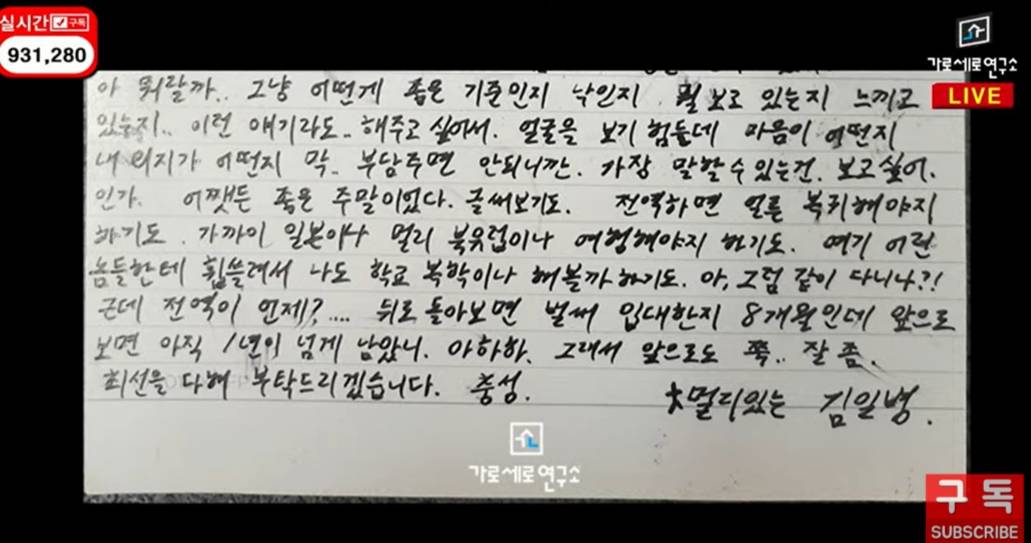 실시간 구독
931,280
가로세로연구소
LIVE
아 뭐랄까.. 그냥 어떤게 좋은 기준인지 낙인지 뭘 보고 있는지 느끼고
있는지.. 이런 얘기라도.. 해주고 싶어서. 얼굴을 보기 힘든데 마음이 어떤지
내 의지가 어떤지 막.. 부담주면 안되니깐. 가장 말할 수 있는건. 보고싶어.
인가. 어쨋든 좋은 주말이었다. 글써보기도. 전역하면 얼른 복귀해야지
하기도. 가까이 일본이나 멀리 북유럽이나 여행해야지 한기도. 여기 어린
놈들한테 휩쓸려서 나도 학교 복학이나 해볼까 하기도. 아, 그럼 같이 다니나?!
근데 전역이 언제?.... 뒤로 돌아보면 벌써 입대한지 8개월인데 앞으로
보면 아직 1년이 넘게 남았니. 아하하. 그래서 앞으로도 쭉.. 잘 좀.
최선을 다해 부탁드리겠습니다. 충성.
멀리있는 김일병.
가로세로연구소
구독
SUBSCRIBE